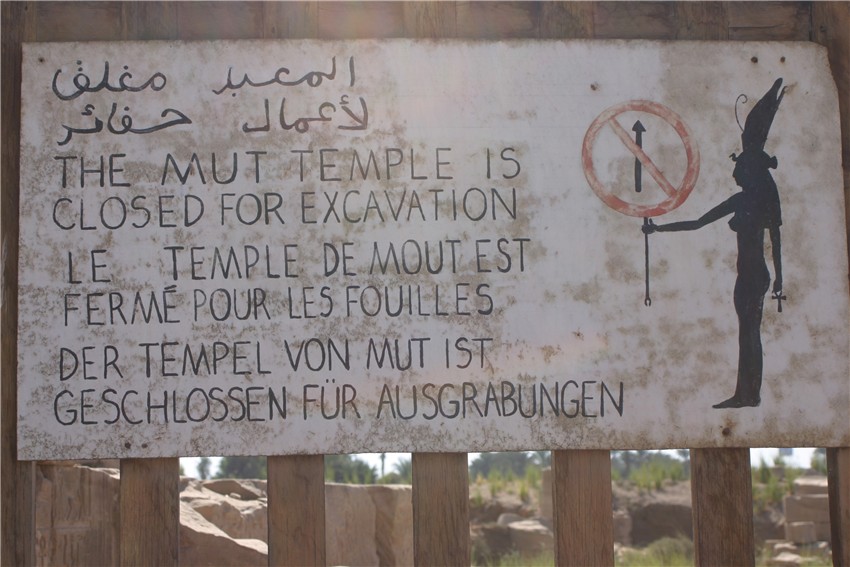 المعبد مغلق
لأعمال حفائر
THE MUT TEMPLE IS
CLOSED FOR EXCAVATION
LE TEMPLE DE MOUT EST
FERMÉ POUR LES FOUILLES.
DER TEMPEL VON MUT IST
GESCHLOSSEN FÜR AUSGRABUNGEN